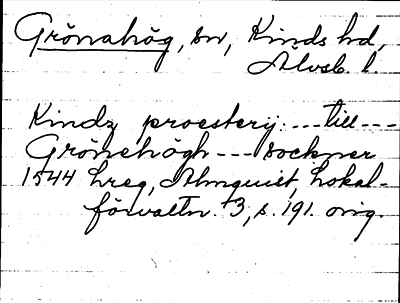 Grönahög, sn, Kinds hd,
Älvsb. l.
Kindz proesterij: --- till ---
Grönehögh --- sockner
1544 hreg, Almquist, Lokal-
förvaltn. 3, s. 191. orig.